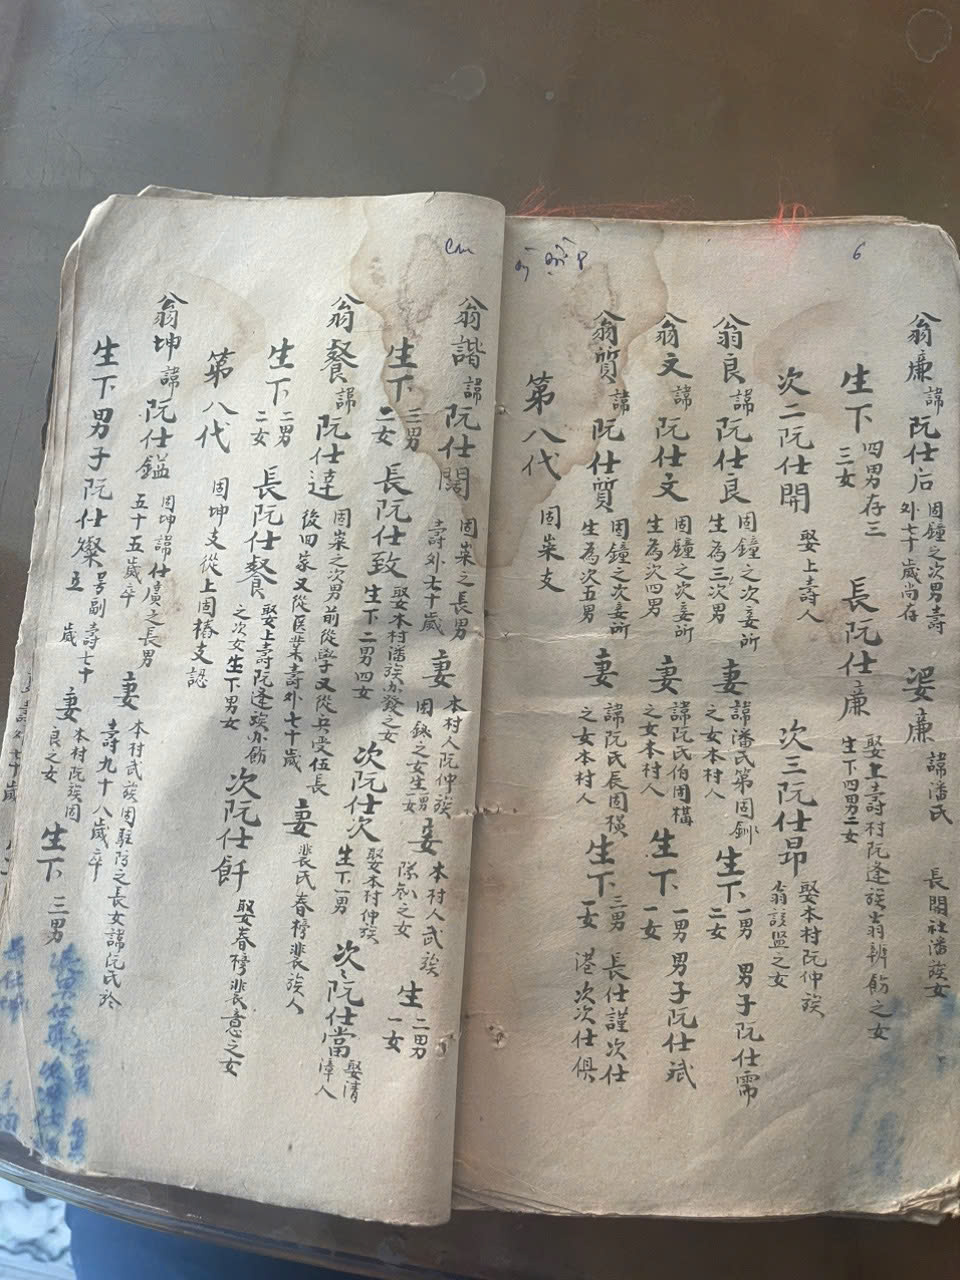 6
翁廉諱阮仕后 固鐘之次男壽外七十歲尚存 娶廉諱潘氏 長閈社潘族女
生下 四男存三 三女 長阮仕廉 娶上壽村阮逢族翁辨飭之女 生下四男二女
次二阮仕開 娶上壽人 次三阮仕昂 娶本村阮仲族翁該盈之女
翁良諱阮仕良 固鐘之次妾所生為三次男 妻諱潘氏第固鉚之女本村人 生下 一男二女 男子阮仕需
翁文諱阮仕文 固鐘之次妾所生為次四男 妻諱阮氏伯固構之女本村人 生下 一男一女 男子阮仕斌
翁質諱阮仕質 固鐘之次妾所生為次五男 妻諱阮氏辰固横之女本村人 生下 三男女 長仕謹次仕港次次仕俱
第八代 固棠支
翁諧諱阮仕闊 固棠之長男壽外七十歲 妻本村人阮仲族固錄之女生一男一女 妾本村人武族隊之女 生二男一女
生下 三男二女 長阮仕致 娶本村潘族亦發之女 生下二男四女 次阮仕次 娶本村仲族 生下一男 次阮仕當 娶清漳人
翁餐諱阮仕達 固棠之次男前從學又從兵受伍長後回家又從医業壽外七十歲 妻裴氏春榜裴族人
生下 二男二女 長阮仕餐 娶上壽阮逢族亦飭之次女生下男女 次阮仕飦 娶春榜裴意之女
第八代 固坤支從上固椿支認
翁坤諱阮仕鎰 固坤諱仕廣之長男五十五歲卒 妻本村武族固駐阿之長女諱阮氏於壽九十八歲卒
生下男子阮仕燦 号副壽七十歲 妻本村阮族固良之女 生下 三男